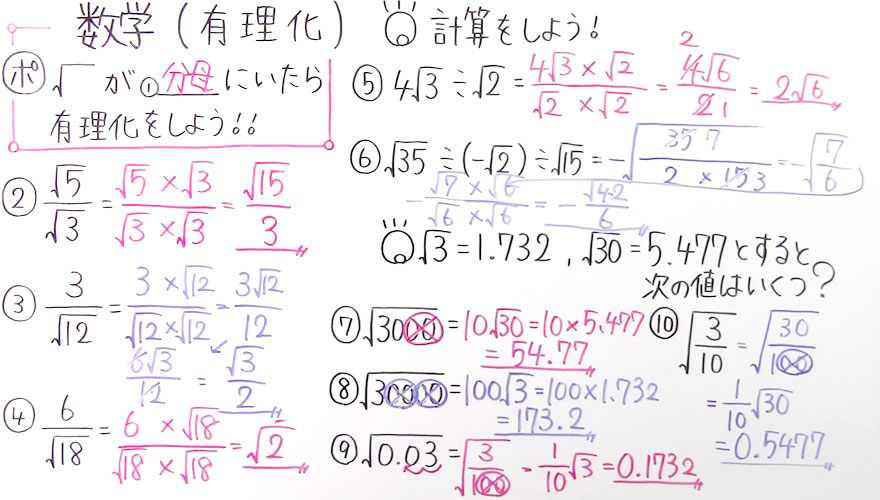 数学(有理化)
ポ √ が ① 分母 にいたら
有理化をしよう!!
② √5/√3 = √5×√3/√3×√3 = √15/3
③ 3/√12 = 3×√12/√12×√12 = 3√12/12
6√3/12 = √3/2
④ 6/√18 = 6×√18/√18×√18 = √2
計算をしよう!
⑤ 4√3÷√2 = 4√3×√2/√2×√2 = 2 4√6/2 1 = 2√6
⑥ √35÷(-√2)÷√15 = -√35 7/2×15 3 = -√7/6
-√7×√6/√6×√6 = -√42/6
√3=1.732, √30=5.477とすると
次の値はいくつ?
⑦ √3000 = 10√30 = 10×5.477
= 54.77
⑧ √30000 = 100√3 = 100×1.732
= 173.2
⑨ √0.03 = √3/100 = 1/10√3 = 0.1732
⑩ √3/10 = √30/100
= 1/10√30
= 0.5477